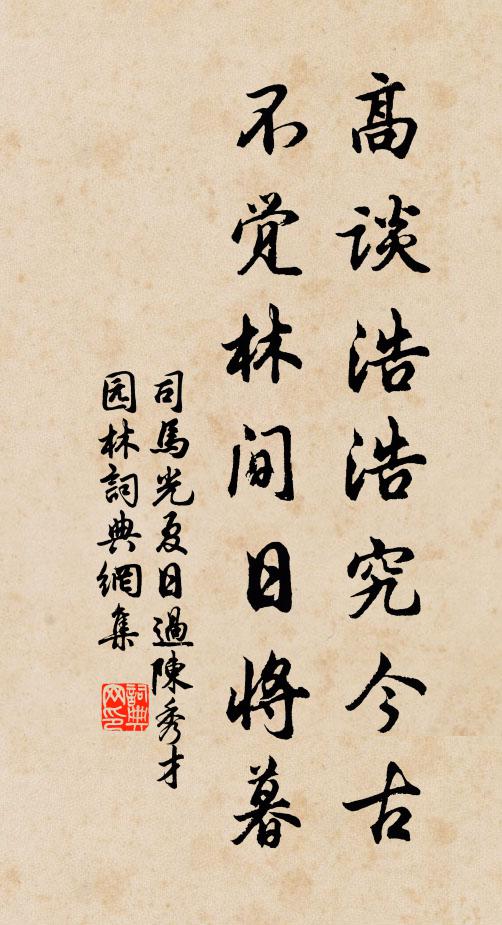 高谈浩浩究今古
不觉林间日将暮
司馬光夏日過陳秀才
园林詞典網集
詞典网印